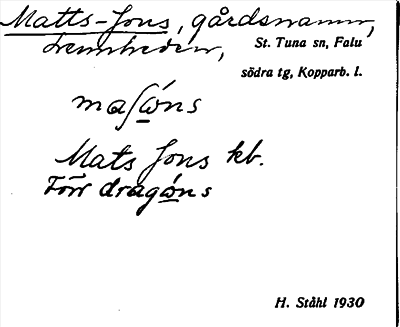 Matts-Jons, gårdsnamn,
St. Tuna sn, Falu
södra tg, Kopparb. l.
Mats Jons kb.
Förr dragóns
H. Ståhl 1930